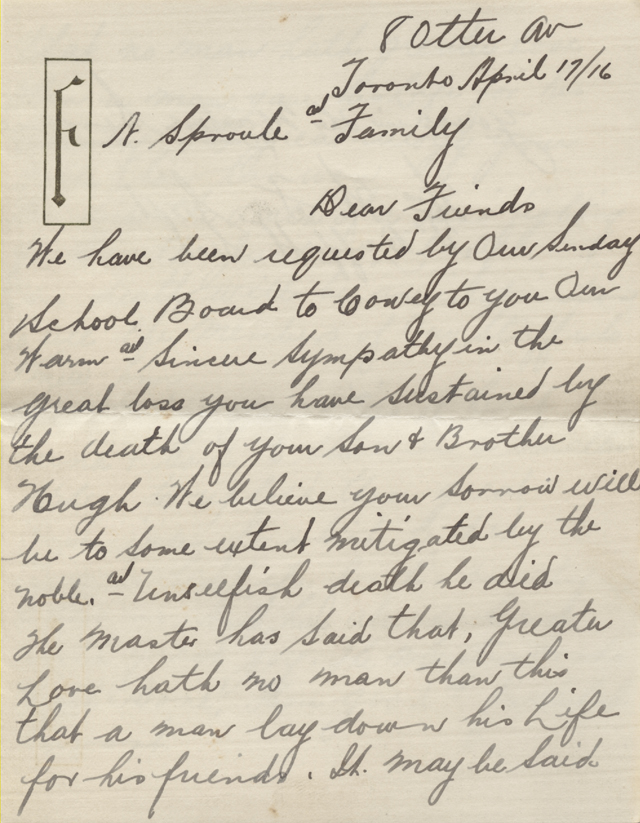 8 Otter Av
Toronto April 17/16
F
N. Sproule and Family
Dear Friends
We have been requested by Our Sunday
School Board to Convey to you Our
Warm and Sincere Sympathy in the
great loss you have sustained by
the death of your Son & Brother
Hugh. We believe your sorrow will
be to some extent mitigated by the
noble. and Unselfish death he died
The Master has said that, Greater
Love hath no man than this
that a man lay down his Life
for his friends. It. may be Said